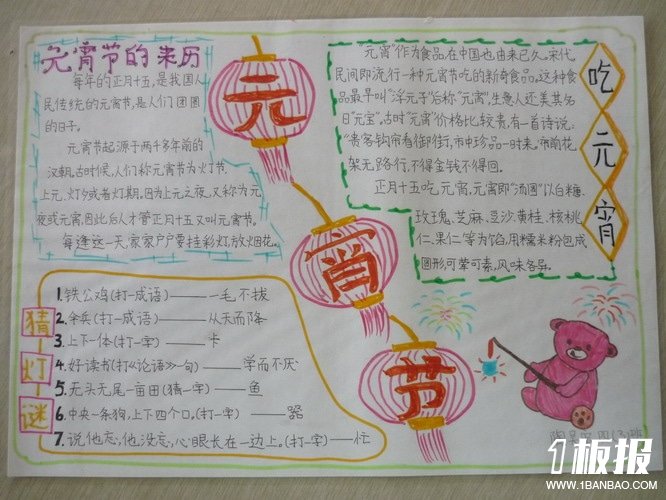 元宵节的来历
每年的正月十五,是我国人
民传统的元宵节,是人们团圆
的日子。
元宵节起源于两千多年前的
汉朝,古时候,人们称元宵节为灯节,
上元、灯夕或者灯期。因为上元之夜,又称为元
夜或元宵,因此后人才管正月十五又叫元宵节。
每逢这一天,家家户户要挂彩灯,放烟花。
元
宵
节
元宵"作为食品,在中国也由来已久。宋代,
民间即流行一种元宵节吃的新奇食品。这种食
品最早叫"浮元子"后称"元宵",生意人还美其名
曰"元宝"。古时"元宵"价格比较贵,有一首诗说:
"贵客钩帘看御街,市中珍品一时来。市前花
架无路行,不得金钱不得回。
正月十五吃元宵,元宵即"汤圆"以白糖、
玫瑰、芝麻、豆沙、黄桂、核桃
仁、果仁等为馅,用糯米粉包成
圆形,可荤可素,风味各异。
吃
元
宵
猜
灯
谜
1.铁公鸡(打一成语)——一毛不拔
2.伞兵(打一成语)——从天而降
3.上下一体(打一字)——卡
4.好读书(打《论语》一句)——学而不厌
5.无头无尾一亩田(猜一字)——鱼
6.中央一条狗,上下四个口。(打一字)——器
7.说他忘,他没忘,心眼长在一边上。(打一字)——忙
1板报
WWW.1BANBAO.COM